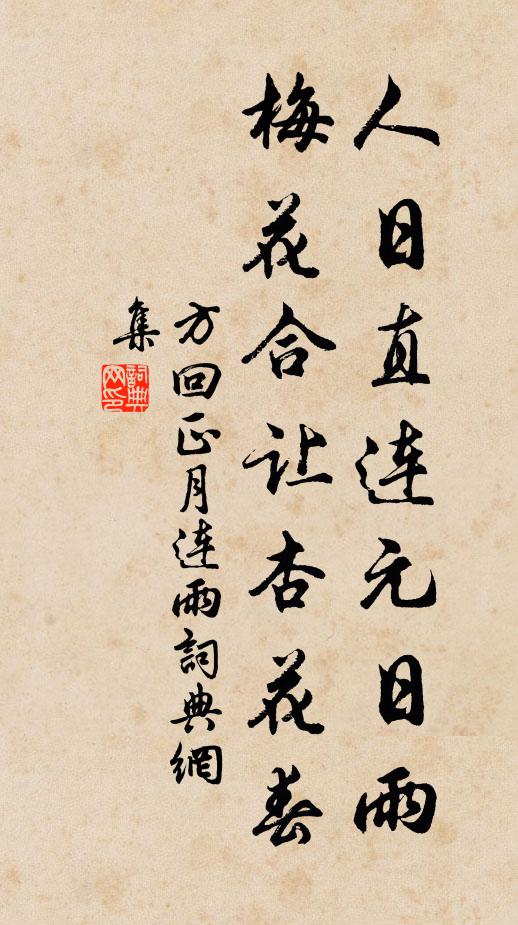 人日直连元日雨
梅花合让杏花春
方回正月连雨詞典網
集
詞典网印